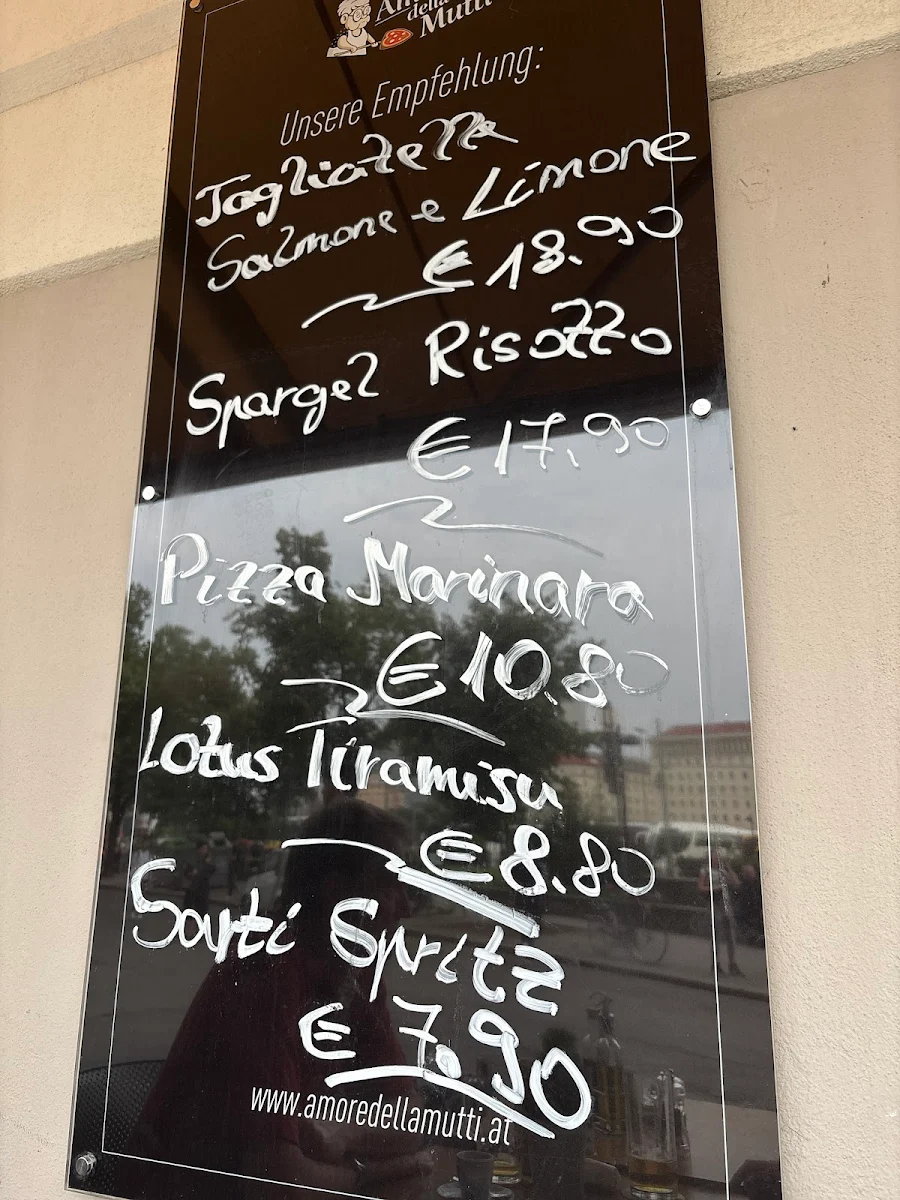 della
Mutti
Unsere Empfehlung:
Tagliatelle
Salmone e Limone
€ 18.90
Spargel Risotto
€ 17.90
Pizza Marinara
€ 10.80
Lotus Tiramisu
€ 8.80
Sarti Spritz
€ 7.90
www.amoredellamutti.at